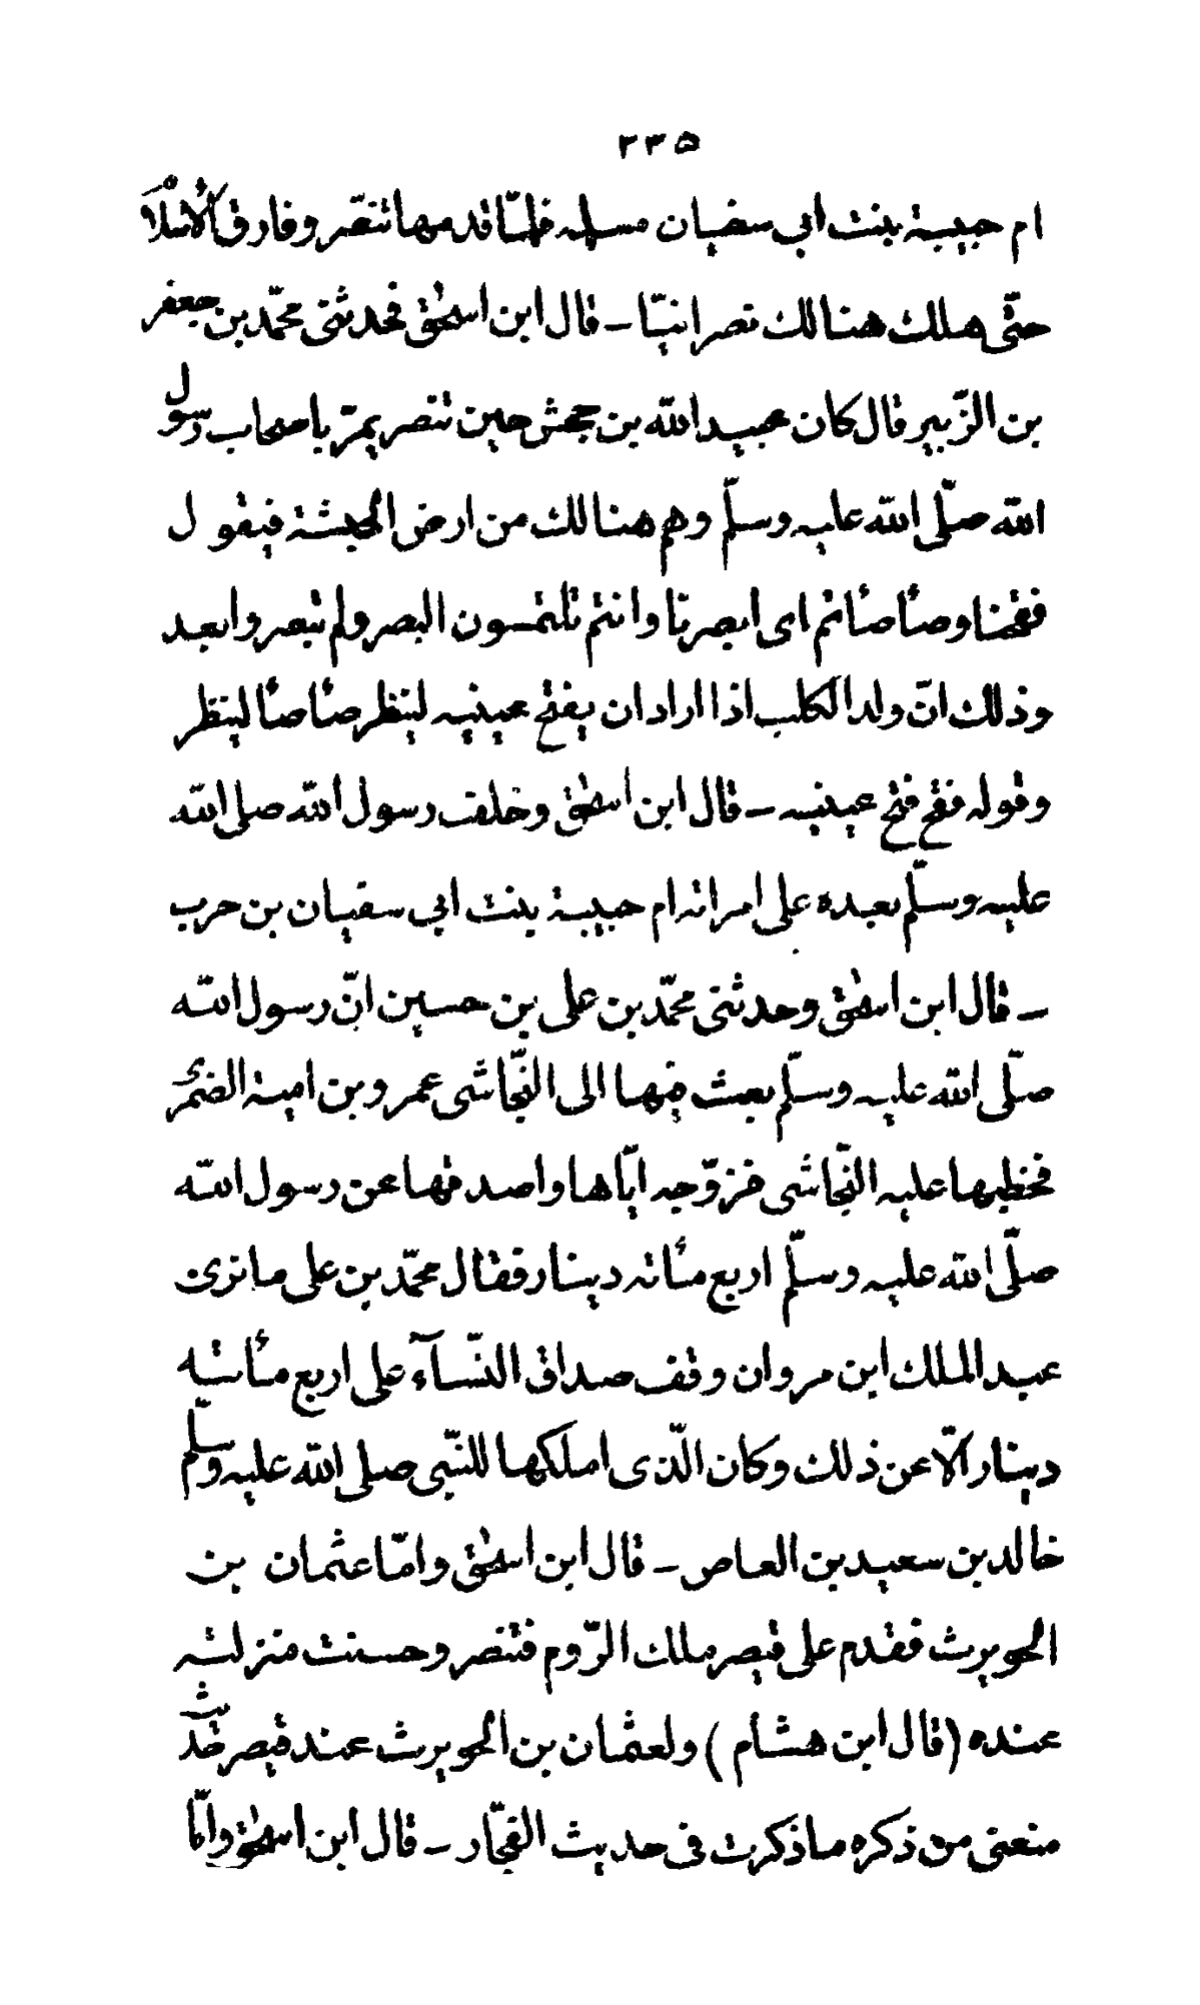 ۲۳۵
ام حبيبة بنت ابي سفيان مسلمه فلمّا قدمها تنصّر وفارق الاسلام
حتّى هلك هنالك نصرانيّا ـ قال ابن اسحٰق فحدثنى محمّد بن جعفر
بن الزّبير قال كان عبيد الله بن جحش حين تنصر يمرّ باصحاب رسول
الله صلّى الله عليه وسلّم وهم هنالك من ارض الحبشة فيقول
فقحنا وصأصأتم اى ابصرنا وانتم تلتمسون البصر ولم تبصروا بعد
وذلك انّ ولد الكلب اذا اراد ان يفتح عينيه لينظر صأصأ لينظر
وقوله فقح فتح عينيه ـ قال ابن اسحٰق وخلف رسول الله صلى الله
عليه وسلّم بعده على امراته ام حبيبة بنت ابي سفيان بن حرب
ـ قال ابن اسحٰق وحدثنى محمّد بن على بن حسين انّ رسول الله
صلّى الله عليه وسلّم بعث فيها الى النّجاشى عمرو بن امية الضمرى
فخطبها عليه النّجاشى فزوّجه ايّاها واصدقها عن رسول الله
صلّى الله عليه وسلّم اربع مأته دينار فقال محمّد بن على ما نرى
عبد الملك ابن مروان وقف صداق النّسآء على اربع مأته
دينار الّا عن ذلك وكان الّذى املكها للنّبى صلى الله عليه وسلّم
خالد بن سعيد بن العاص ـ قال ابن اسحٰق وامّا عثمان بن
الحويرث فقدم على قيصر ملك الرّوم فتنصر وحسنت منزلته
عنده (قال ابن هشام) ولعثمان بن الحويرث عند قيصر حديث
منعنى من ذكره ما ذكرت فى حديث الفجّار ـ قال ابن اسحٰق وامّا